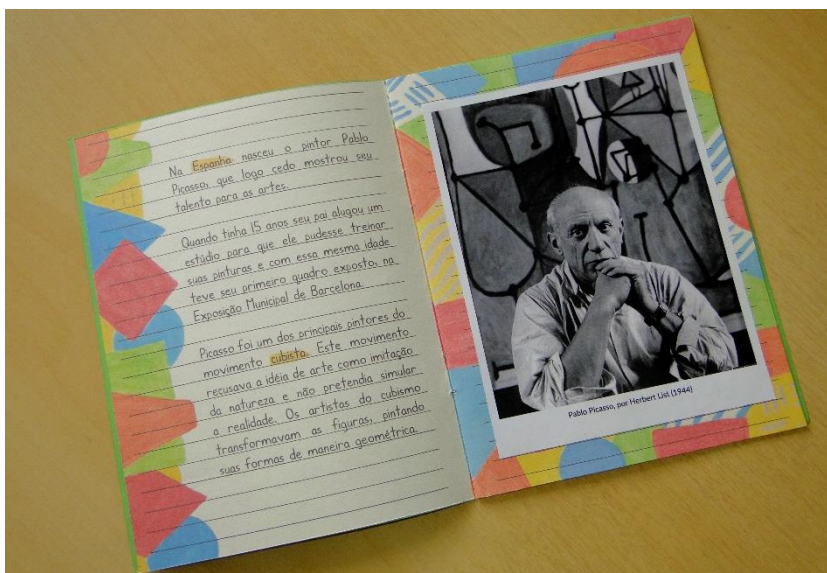 Na Espanha nasceu o pintor Pablo
Picasso, que logo cedo mostrou seu
talento para as artes.
Quando tinha 15 anos seu pai alugou um
estúdio para que ele pudesse treinar
suas pinturas e com essa mesma idade
teve seu primeiro quadro exposto, na
Exposição Municipal de Barcelona.
Picasso foi um dos principais pintores do
movimento cubista. Este movimento
recusava a idéia de arte como imitação
da natureza e não pretendia simular
a realidade. Os artistas do cubismo
transformavam as figuras, pintando
suas formas de maneira geométrica.
Pablo Picasso, por Herbert List (1944)